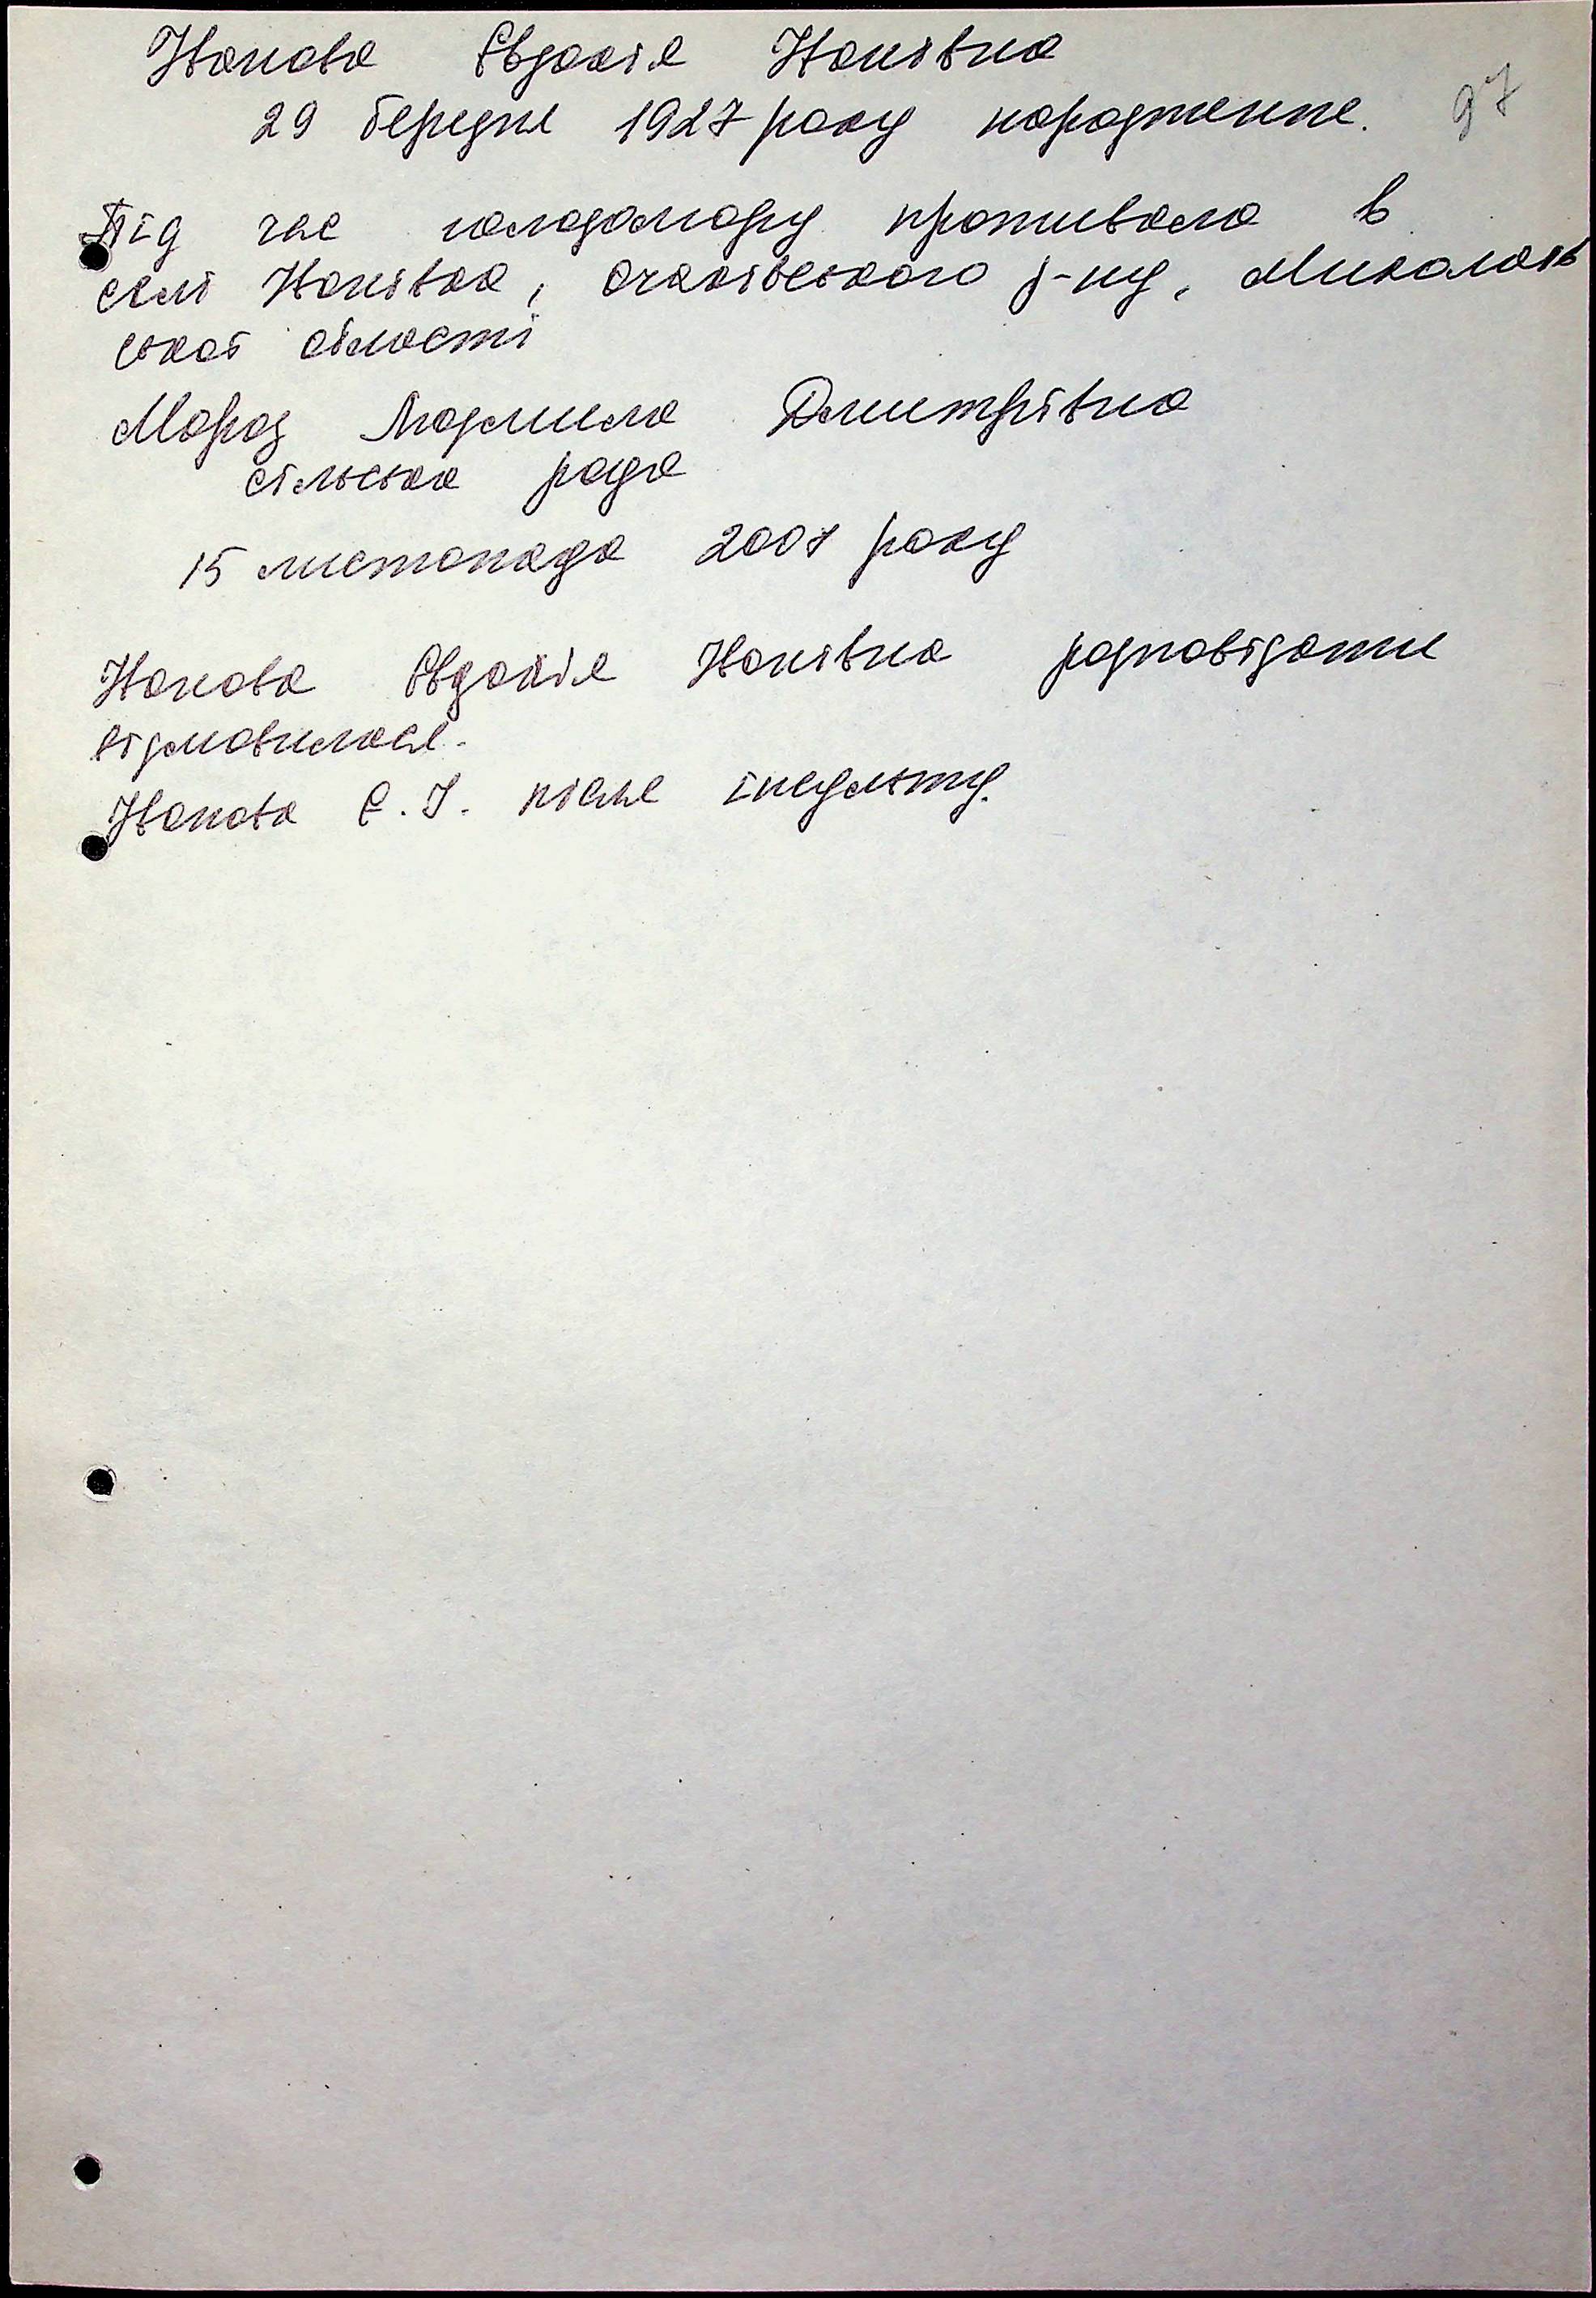 Іванова Євдокія Іванівна
29 березня 1927 року народження. 97
Під час голодомору проживала в
селі Іванівка, Очаківського р-ну, Миколаїв
ської області
Мороз Людмила Дмитрівна
сільська рада
15 листопада 2007 року
Іванова Євдокія Іванівна розповідати
відмовилася.
Іванова Є. І. після інсульту.